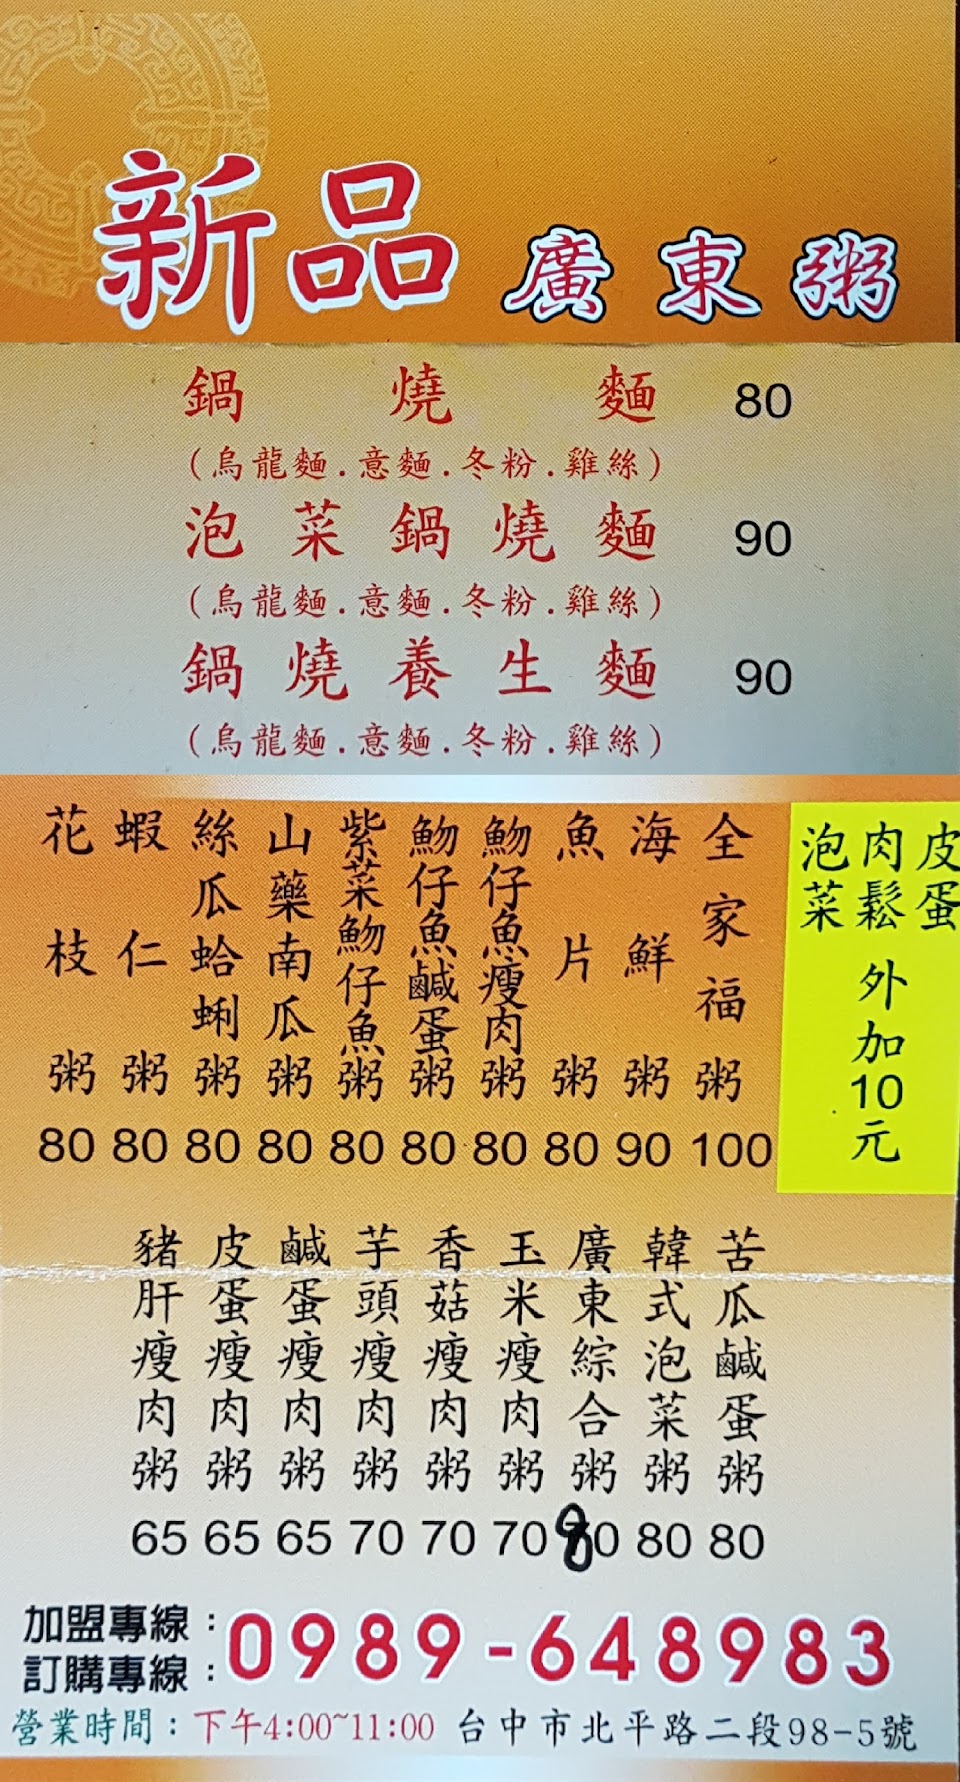 新品 廣東粥
鍋燒麵 80
(烏龍麵.意麵.冬粉.雞絲)
泡菜鍋燒麵 90
(烏龍麵.意麵.冬粉.雞絲)
鍋燒養生麵 90
(烏龍麵.意麵.冬粉.雞絲)
皮蛋
肉鬆
泡菜
外加10元
全家福粥 100
海鮮粥 90
魚片粥 80
魩仔魚瘦肉粥 80
魩仔魚鹹蛋粥 80
紫菜魩仔魚粥 80
山藥南瓜粥 80
絲瓜蛤蜊粥 80
蝦仁粥 80
花枝粥 80
苦瓜鹹蛋粥 80
韓式泡菜粥 80
廣東綜合粥 80
玉米瘦肉粥 70
香菇瘦肉粥 70
芋頭瘦肉粥 70
鹹蛋瘦肉粥 65
皮蛋瘦肉粥 65
豬肝瘦肉粥 65
加盟專線:
訂購專線:
0989-648983
營業時間:下午4:00~11:00 台中市北平路二段98-5號